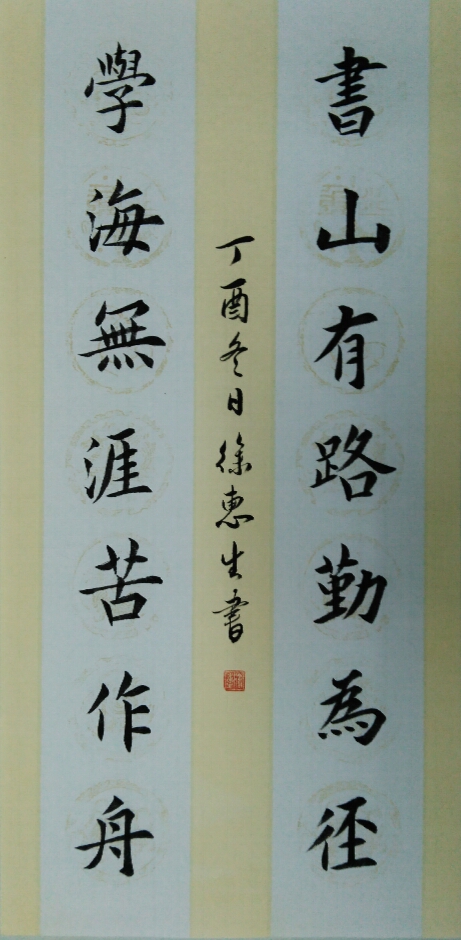 書山有路勤為徑
學海無涯苦作舟
丁酉冬日徐惠生書